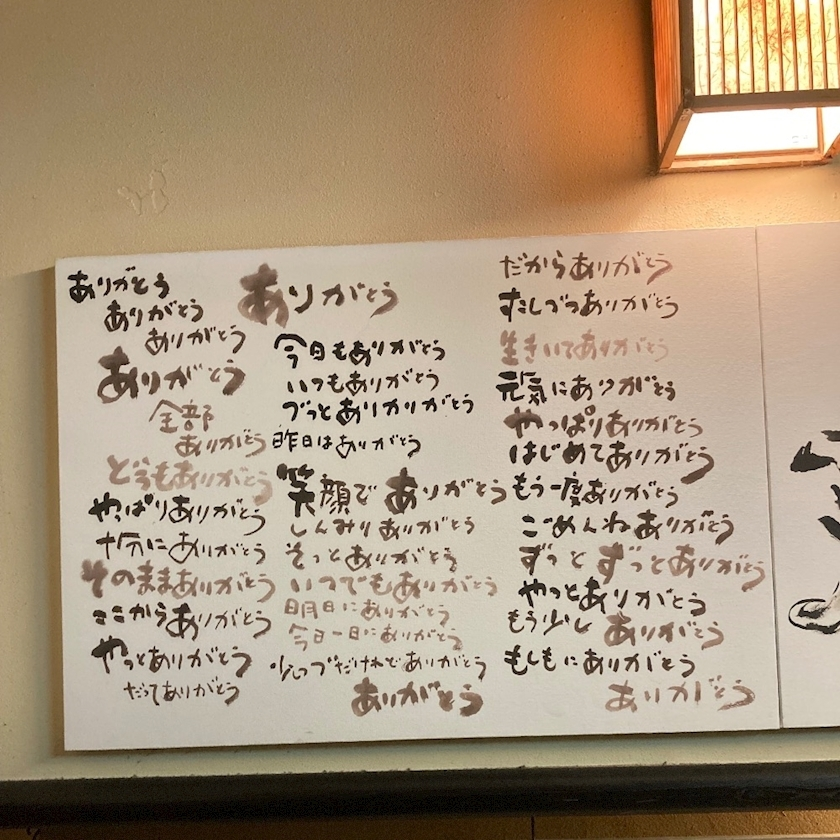 ありがとう
ありがとう
ありがとう
ありがとう
全部
ありがとう
どうもありがとう
やっぱりありがとう
十分にありがとう
そのままありがとう
ここからありがとう
やっとありがとう
だってありがとう
ありがとう
今日もありがとう
いつもありがとう
づっとありがとう
昨日はありがとう
笑顔でありがとう
しんみりありがとう
そっとありがとう
いつでもありがとう
明日にありがとう
今日一日にありがとう
少しつづだけれどありがとう
ありがとう
だからありがとう
すこしづつありがとう
生きいてありがとう
元気にありがとう
やっぱりありがとう
はじめてありがとう
もう一度ありがとう
ごめんねありがとう
ずっとずっとありがとう
やっとありがとう
もう少しありがとう
もしもにありがとう
ありがとう